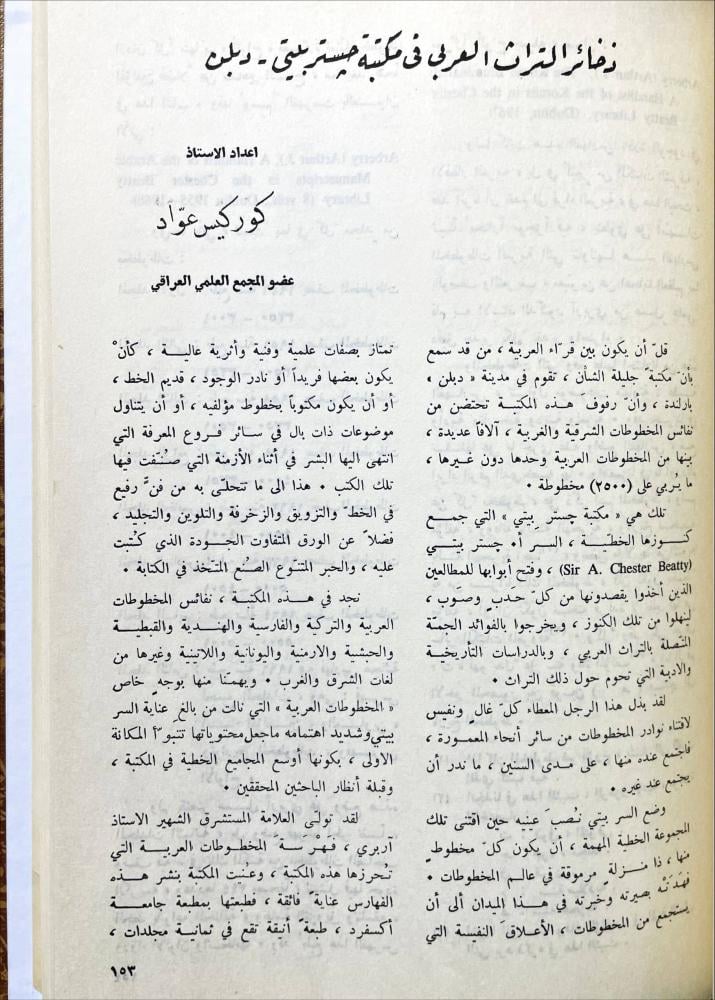 ذخائر التراث العربي في مكتبة چستر بيتي - دبلن
اعداد الاستاذ
كوركيس عوّاد
عضو المجمع العلمي العراقي
قلّ أن يكون بين قرّاء العربية ، من قد سمع
بأنّ مكتبة جليلة الشأن ، تقوم في مدينة « دبلن »
بارلندة ، وأنّ رفوفَ هذه المكتبة تحتضن من
نفائس المخطوطات الشرقية والغربية ، آلافاً عديدة ،
بينها من المخطوطات العربية وحدها دون غيرها ،
ما يُربي على (٢٥٠٠) مخطوطة ٠
تلك هي « مكتبة چستر بيتي » التي جمع
كنوزها الخطيّة ، السر أ٠ چستر بيتي
(Sir A. Chester Beatty) ، وفتح أبوابها للمطالعين
الذين أخذوا يقصدونها من كلّ حَدَبٍ وصَوب ،
لينهلوا من تلك الكنوز ، ويخرجوا بالفوائد الجمّة
المتّصلة بالتراث العربي ، وبالدراسات التأريخية
والادبية التي تحوم حول ذلك التراث ٠
لقد بذل هذا الرجل المعطاء كلّ غالٍ ونفيس
لاقتناء نوادر المخطوطات من سائر أنحاء المعمورة ،
فاجتمع عنده منها ، على مدى السنين ، ما ندر أن
يجتمع عند غيره ٠
وضع السر بيتي نُصبَ عينيه حين اقتنى تلك
المجموعة الخطية المهمة ، أن يكون كلّ مخطوطٍ
منها ، ذا منزلةٍ مرموقة في عالم المخطوطات ٠
فهَدَتْه بصيرته وخبرته في هذا الميدان الى أن
يستجمع من المخطوطات ، الأعلاقَ النفيسة التي
تمتاز بصفات علمية وفنية وأثرية عالية ، كأنْ
يكون بعضها فريداً أو نادر الوجود ، قديم الخط ،
أو أن يكون مكتوباً بخطوط مؤلفيه ، أو أن يتناول
موضوعات ذات بال في سائر فروع المعرفة التي
انتهى اليها البشر في أثناء الأزمنة التي صنُنّفت فيها
تلك الكتب ٠ هذا الى ما تتحلّى به من فنّ رفيع
في الخطّ والتزويق والزخرفة والتلوين والتجليد ،
فضلاً عن الورق المتفاوت الجودة الذي كُتبت
عليه ، والحبر المتنوّع الصُنع المتخذ في الكتابة ٠
نجد في هذه المكتبة ، نفائس المخطوطات
العربية والتركية والفارسية والهندية والقبطية
والحبشية والارمنية واليونانية واللاتينية وغيرها من
لغات الشرق والغرب ٠ ويهمّنا منها بوجهٍ خاص
« المخطوطات العربية » التي نالت من بالغ عناية السر
بيتي وشديد اهتمامه ما جعل محتوياتها تتبوّأ المكانة
الاولى ، بكونها أوسع المجاميع الخطية في المكتبة ،
وقبلة أنظار الباحثين المحققين ٠
لقد تولّى العلامة المستشرق الشهير الاستاذ
آربري ، فَهْرَسَةَ المخطوطات العربية التي
تُحرزها هذه المكتبة ، وعُنت المكتبة بنشر هذه
الفهارس عنايةً فائقة ، فطبعتها بمطبعة جامعة
أكسفرد ، طبعةً أنيقة تقع في ثمانية مجلدات ،
١٥٣